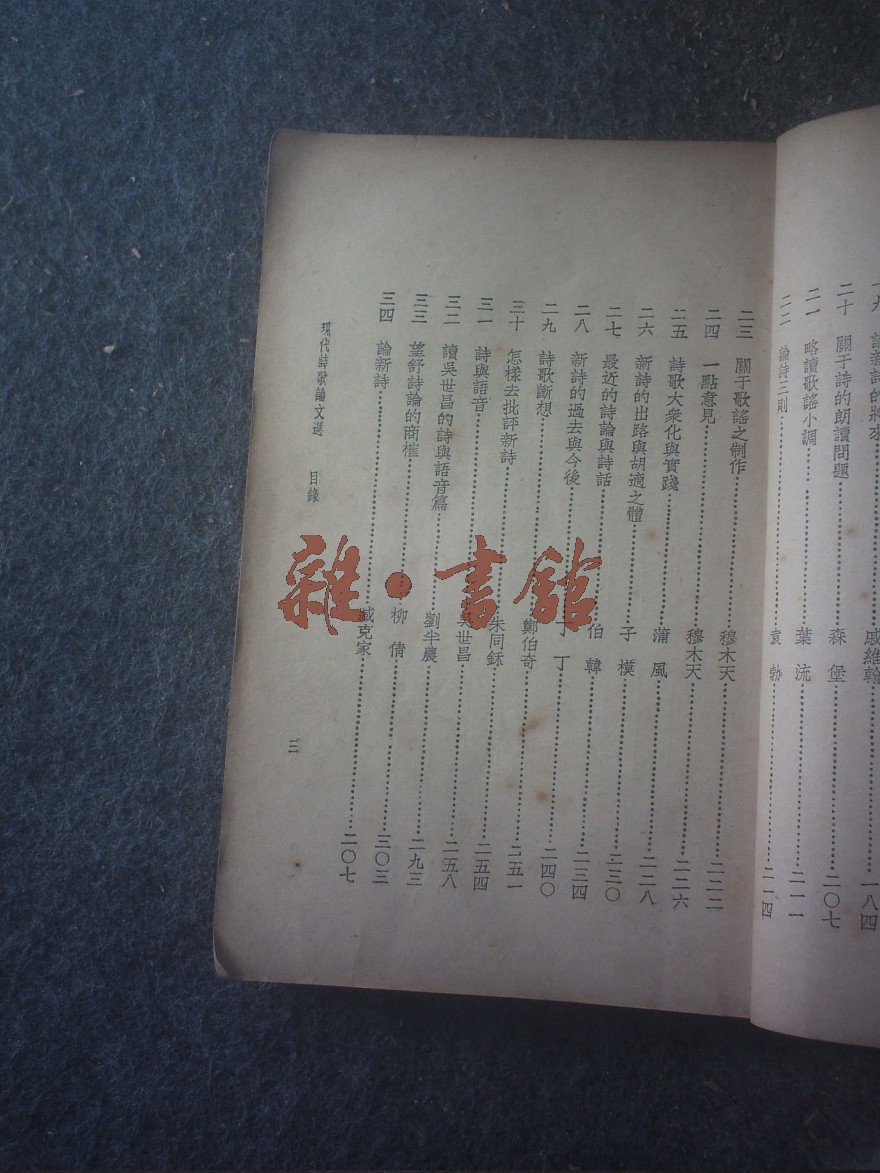 新詩的將來……戚維翰……一八四
二十 關于詩的朗讀問題……森堡……二〇七
二一 略讀歌謠小調……葉流……二一一
二二 論詩三則……袁勃……二一四
二三 關于歌謠之制作……穆木天……二二二
二四 一點意見……穆木天……二二六
二五 詩歌大衆化與實踐……蒲風……二二八
二六 新詩的出路與胡適之體……子模……二三〇
二七 最近的詩論與詩話……伯韓……二三四
二八 新詩的過去與今後……丁丁……二四〇
二九 詩歌斷想……鄭伯奇……二五一
三十 怎樣去批評新詩……朱同……二五四
三一 詩與語音……吳世昌……二五八
三二 讀吳世昌的詩與語音篇……劉半農……二九三
三三 望舒詩論的商榷……柳倩……三〇三
三四 論新詩……臧克家……二〇七
現代詩歌論文選 目錄
三
雜·書館